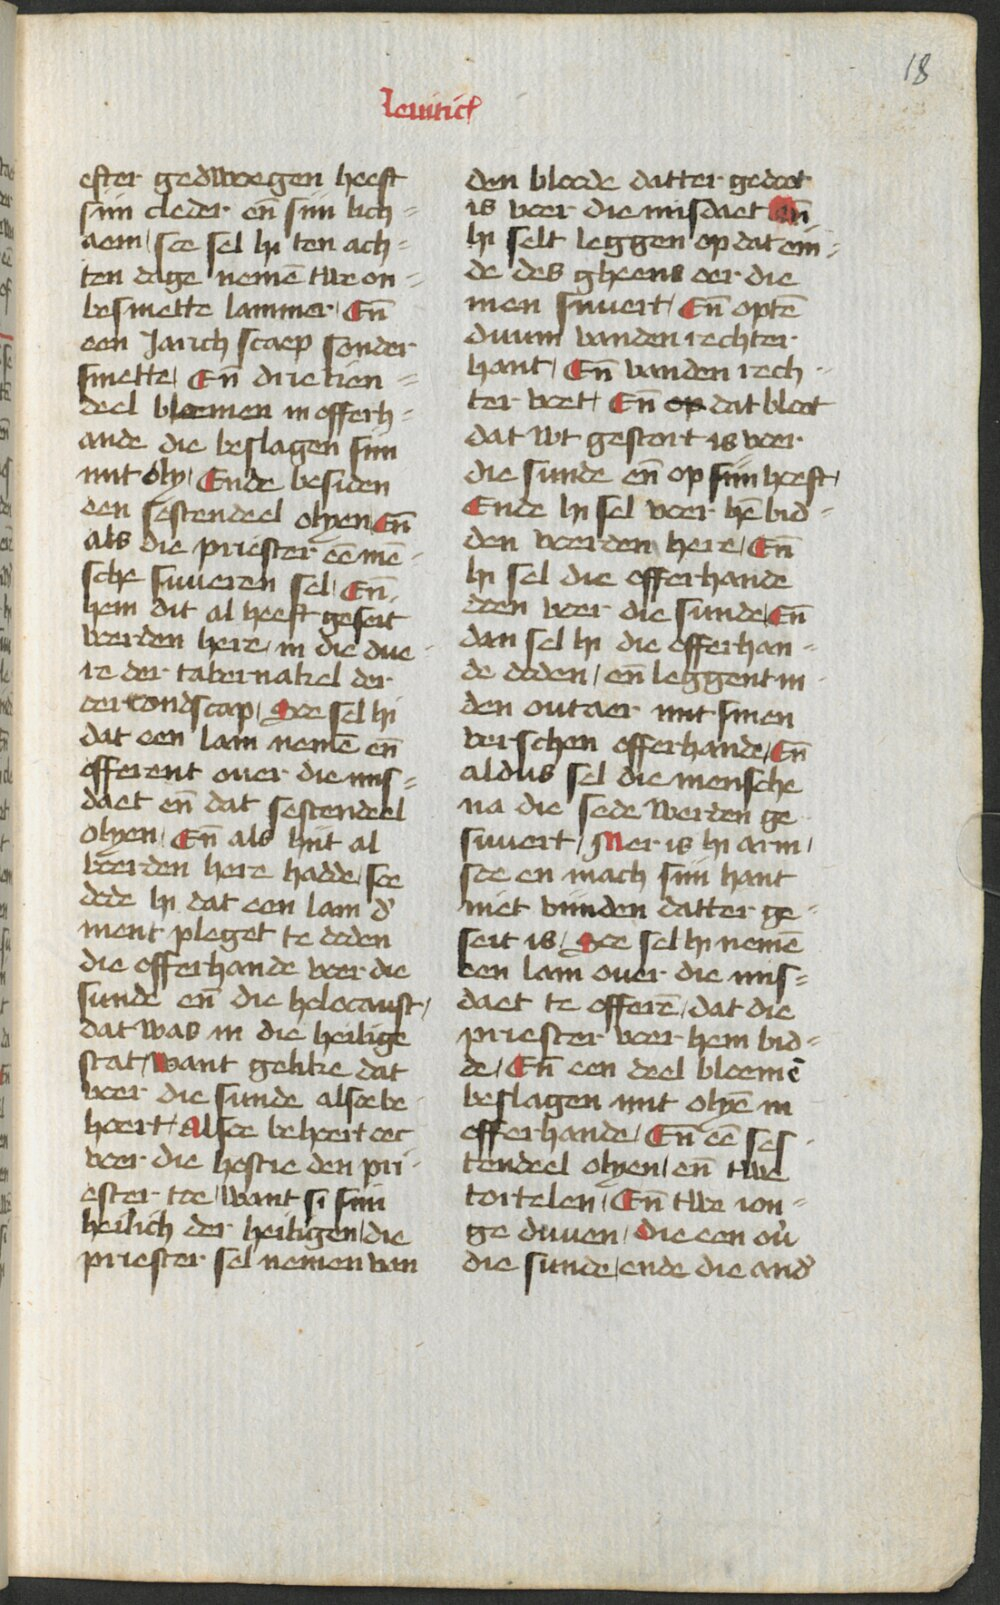 18
leuitici
efter gedwoegen heeft
sijn cleder eñ sijn lich=
aem / soe sel hi ten ach=
ten dage nemē twe on=
besmette lammer / Eñ
een Jarich scaep sonder
smette / Eñ drie tien=
deel bloemen in offerh=
ande die beslagen sijn
mit oly / Ende besiden
een sestendeel olyen Eñ
als die priester eē mē=
sche suueren sel / Eñ
hem dit al heeft geseit
voerden here / in die due=
re der tabernakel der
oercondscap / Soe sel hi
dat een lam nemē eñ
offerent ouer die mis=
daet eñ dat sestendeel
olyen / Eñ als hijt al
voerden here hadde / soe
dede hi dat een lam d'
ment pleget te doden
die offerhande voer die
sunde eñ die holocaust /
dat was in die heilige
stat / want gelike dat
voer die sunde alsoe be=
hoert / Alsoe behoert oec
voer die hostie den pri=
ester toe / want si sijn
heilich der heiligen / die
priester sel nemen van
den bloede datter gedoot
is voer die misdaet Eñ
hi selt leggen op dat ein=
de des gheens oer die
men suuert / Eñ optē
duum vanden rechter
hant / Eñ vanden rech=
ter voet / Eñ op dat bloet
dat wt gestort is voer
die sunde eñ op sijn heeft /
Ende hi sel voer hē bid=
den voerden here / Eñ
hi sel die offerhande
doen voer die sunde / Eñ
dan sel hi die offerhan=
de doden / eñ leggent in
den outaer mit sinen
verschen offerhande / Eñ
aldus sel die mensche
na die sede werden ge
suuert / Mer is hi arm /
soe en mach sijn hant
niet vijnden datter ge=
seit is / Soe sel hi nemē
een lam ouer die mis=
daet te offerē / dat die
priester voer hem bid=
de / Eñ een deel bloemē
beslagen mit olyē in
offerhande / Eñ eē ses=
tendeel olyen / eñ twe
tortelen / Eñ twe ion=
ge duuen / Die een ou'
die sunde / ende die and'